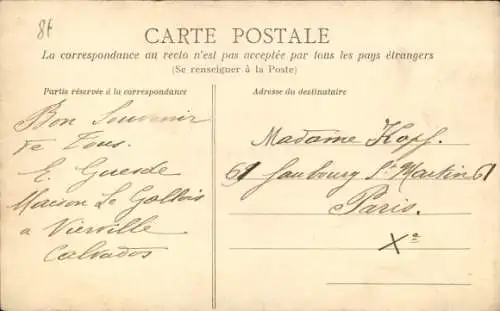 84
CARTE POSTALE
La correspondance au recto n'est pas acceptée par tous les pays étrangers
(Se renseigner à la Poste)
Partie réservée à la correspondance
Adresse du destinataire
Bon Souvenir
de Tous.
E. Guesde
Maison Le Gallois
a Vierville
Calvados
Madame Kopf.
61 faubourg St Martin 61
Paris.
Xe